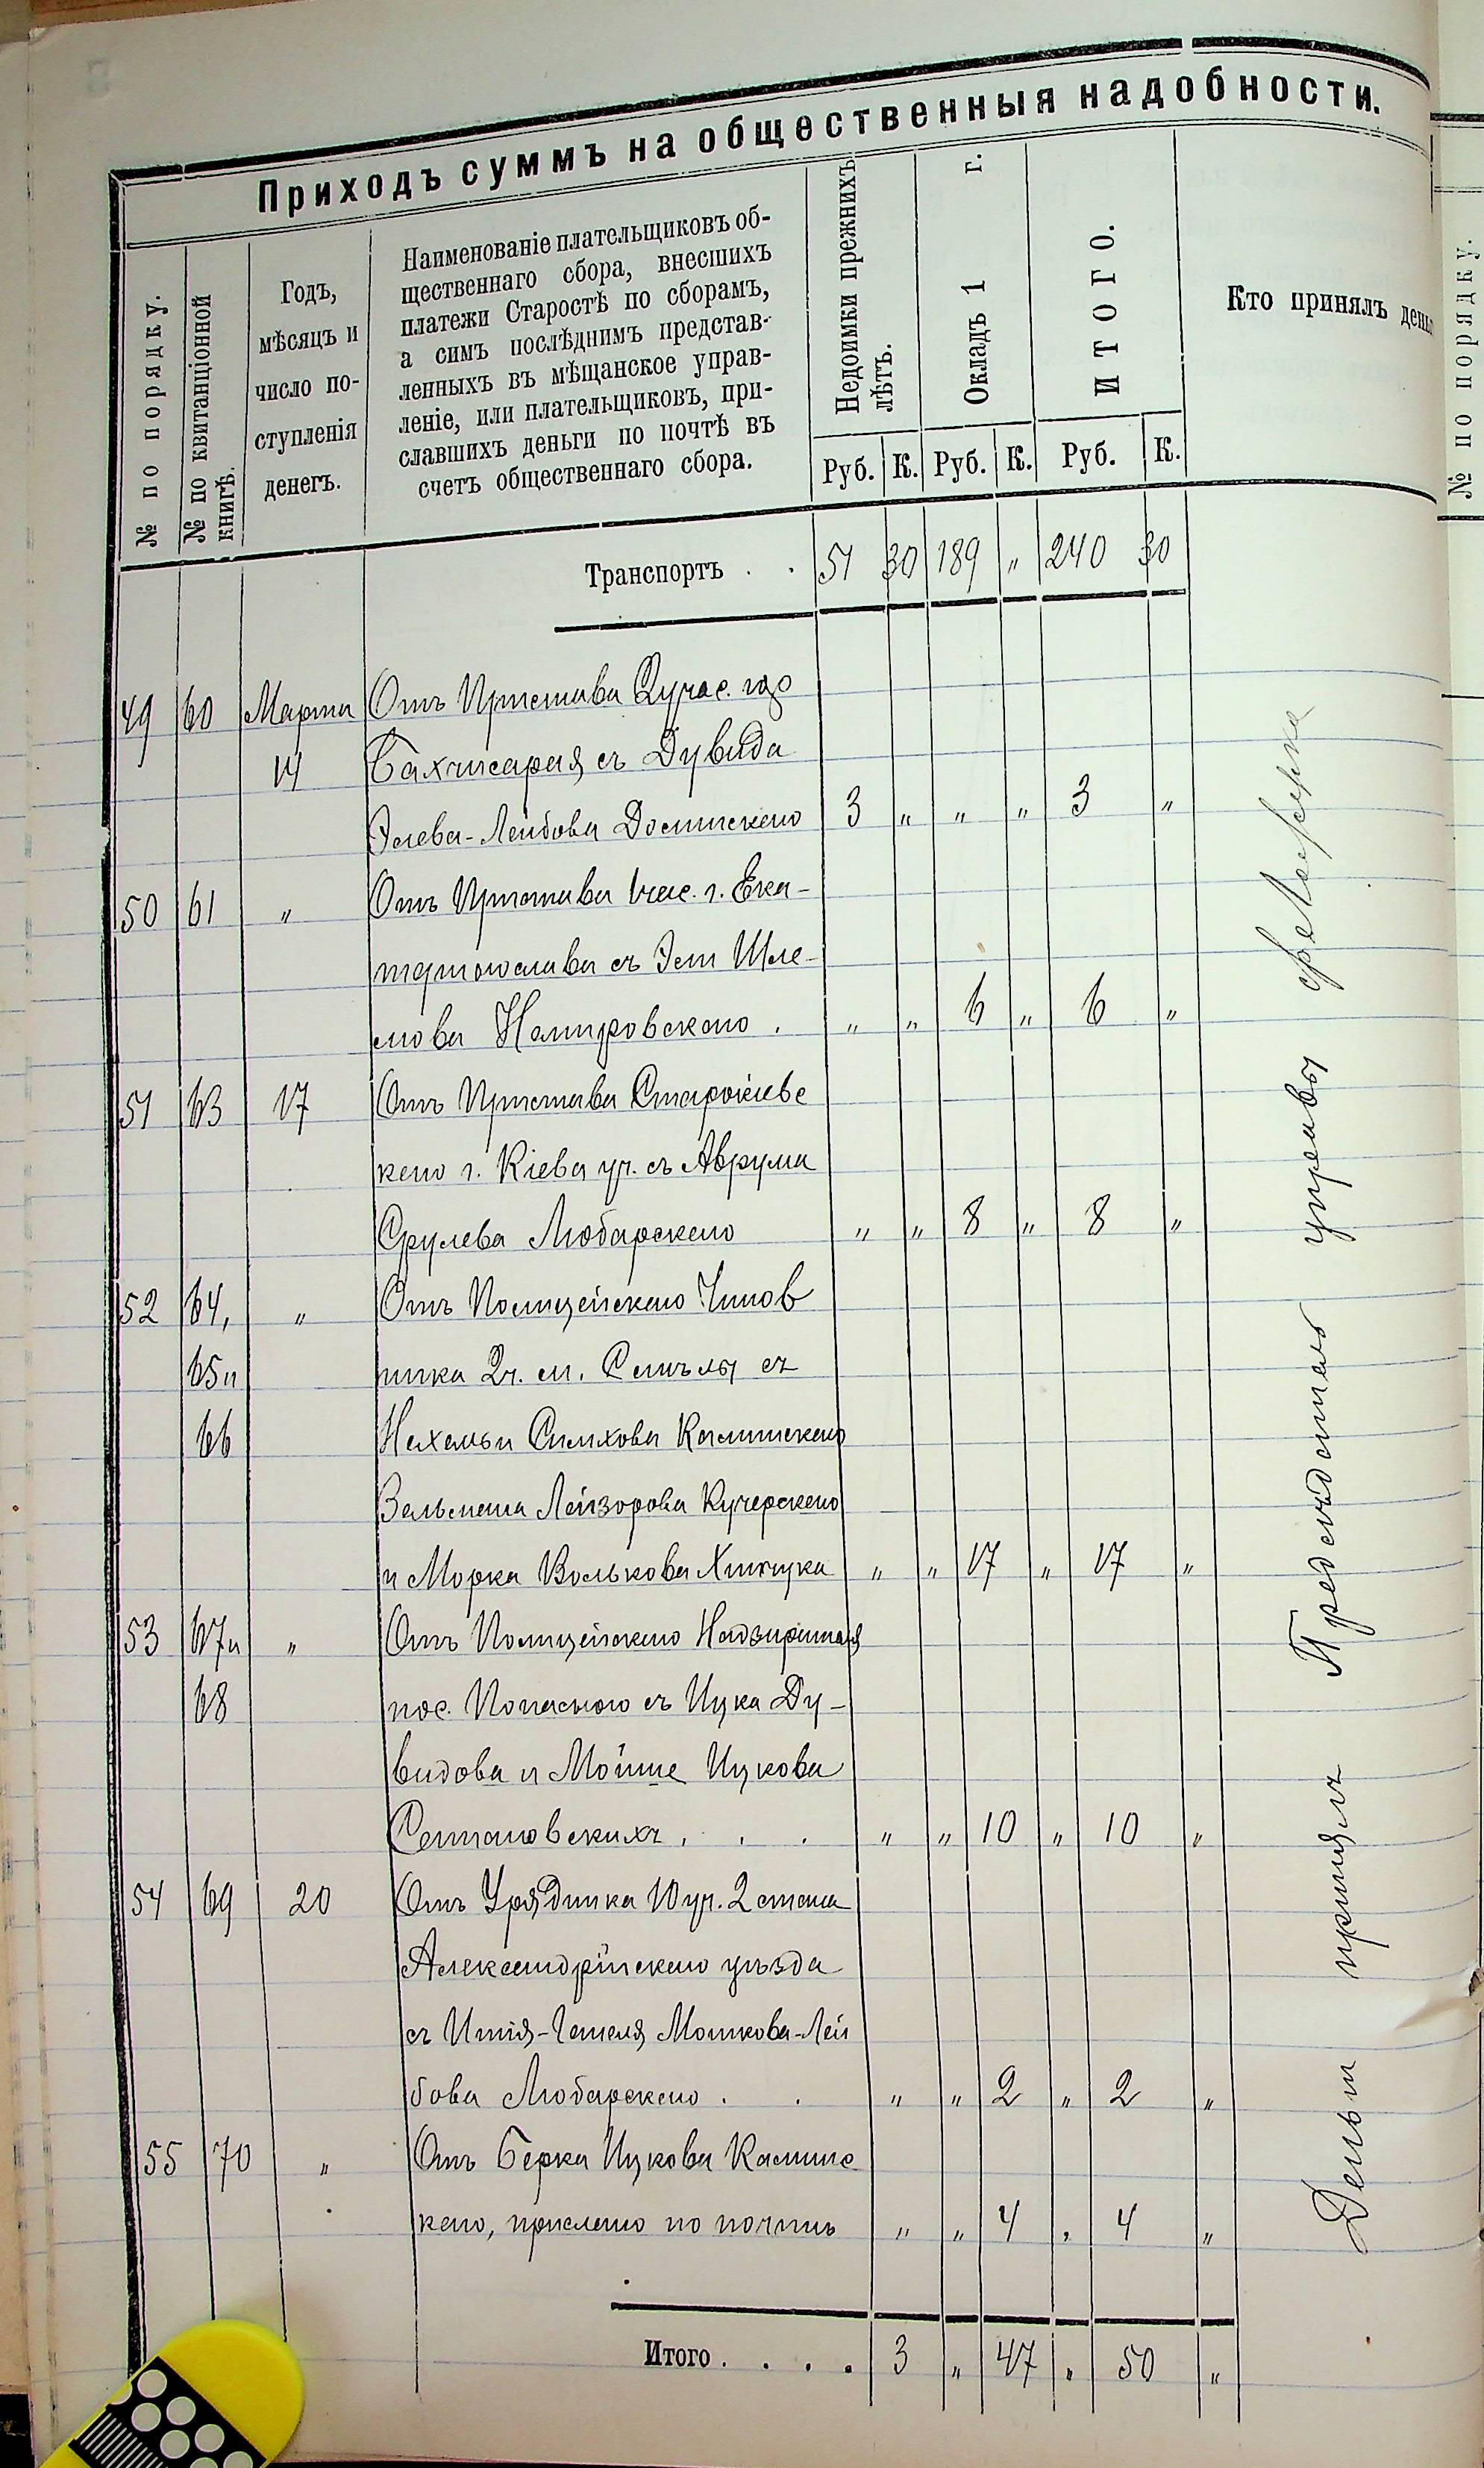 Приходъ суммъ на общественныя надобности.
№ по порядку.
№ по квитанціонной
книгѣ.
Годъ,
мѣсяцъ и
число по-
ступленія
денегъ.
Наименованіе плательщиковъ об-
щественнаго сбора, внесшихъ
платежи Старостѣ по сборамъ,
а симъ послѣднимъ представ-
ленныхъ въ мѣщанское управ-
леніе, или плательщиковъ, при-
славшихъ деньги по почтѣ въ
счетъ общественнаго сбора.
Недоимки прежнихъ
лѣтъ.
Окладъ 1 г.
ИТОГО.
Кто принялъ день
№ по порядку.
Руб. К. Руб. К. Руб. К.
Транспортъ . . 51 30 189 „ 240 30
49 60 Марта Отъ Пристава 2 учас. гор
14 Бахчисарая съ Дувида
Элева-Лейбова Долинскаго 3 „ „ „ 3 „
50 61 „ Отъ Пристава 1 час. г. Ека-
теринослава съ Эли Шле-
мова Немировскаго . „ „ 6 „ 6 „
51 63 17 Отъ Пристава Старокіевс
каго г. Кіева уч. съ Аврума
Срулева Любарскаго „ „ 8 „ 8 „
52 64, „ Отъ Полицейскаго Чинов
65 и ника 2 ч. м. Смѣлы съ
66 Нехемьи Симхова Калинскаго
Зельмана Лейзорова Кучерскаго
и Морка Волькова „ „ 17 „ 17 „
53 67 и „ Отъ Полицейскаго Надзирателя
68 пос. Попаснаго съ Ицка Ду-
видова и Мойше Ицкова
. . . „ „ 10 „ 10 „
54 69 20 Отъ Урядника 10 уч. 2 стана
Александрійскаго уѣзда
съ Мошкова-Лей
бова Любарскаго . . „ „ 2 „ 2 „
55 70 „ Отъ Берка Ицкова Калинс
каго, прислано по почтѣ „ „ 4 „ 4 „
Итого . . . . 3 „ 47 „ 50 „
Деньги принялъ Предсѣдатель управы